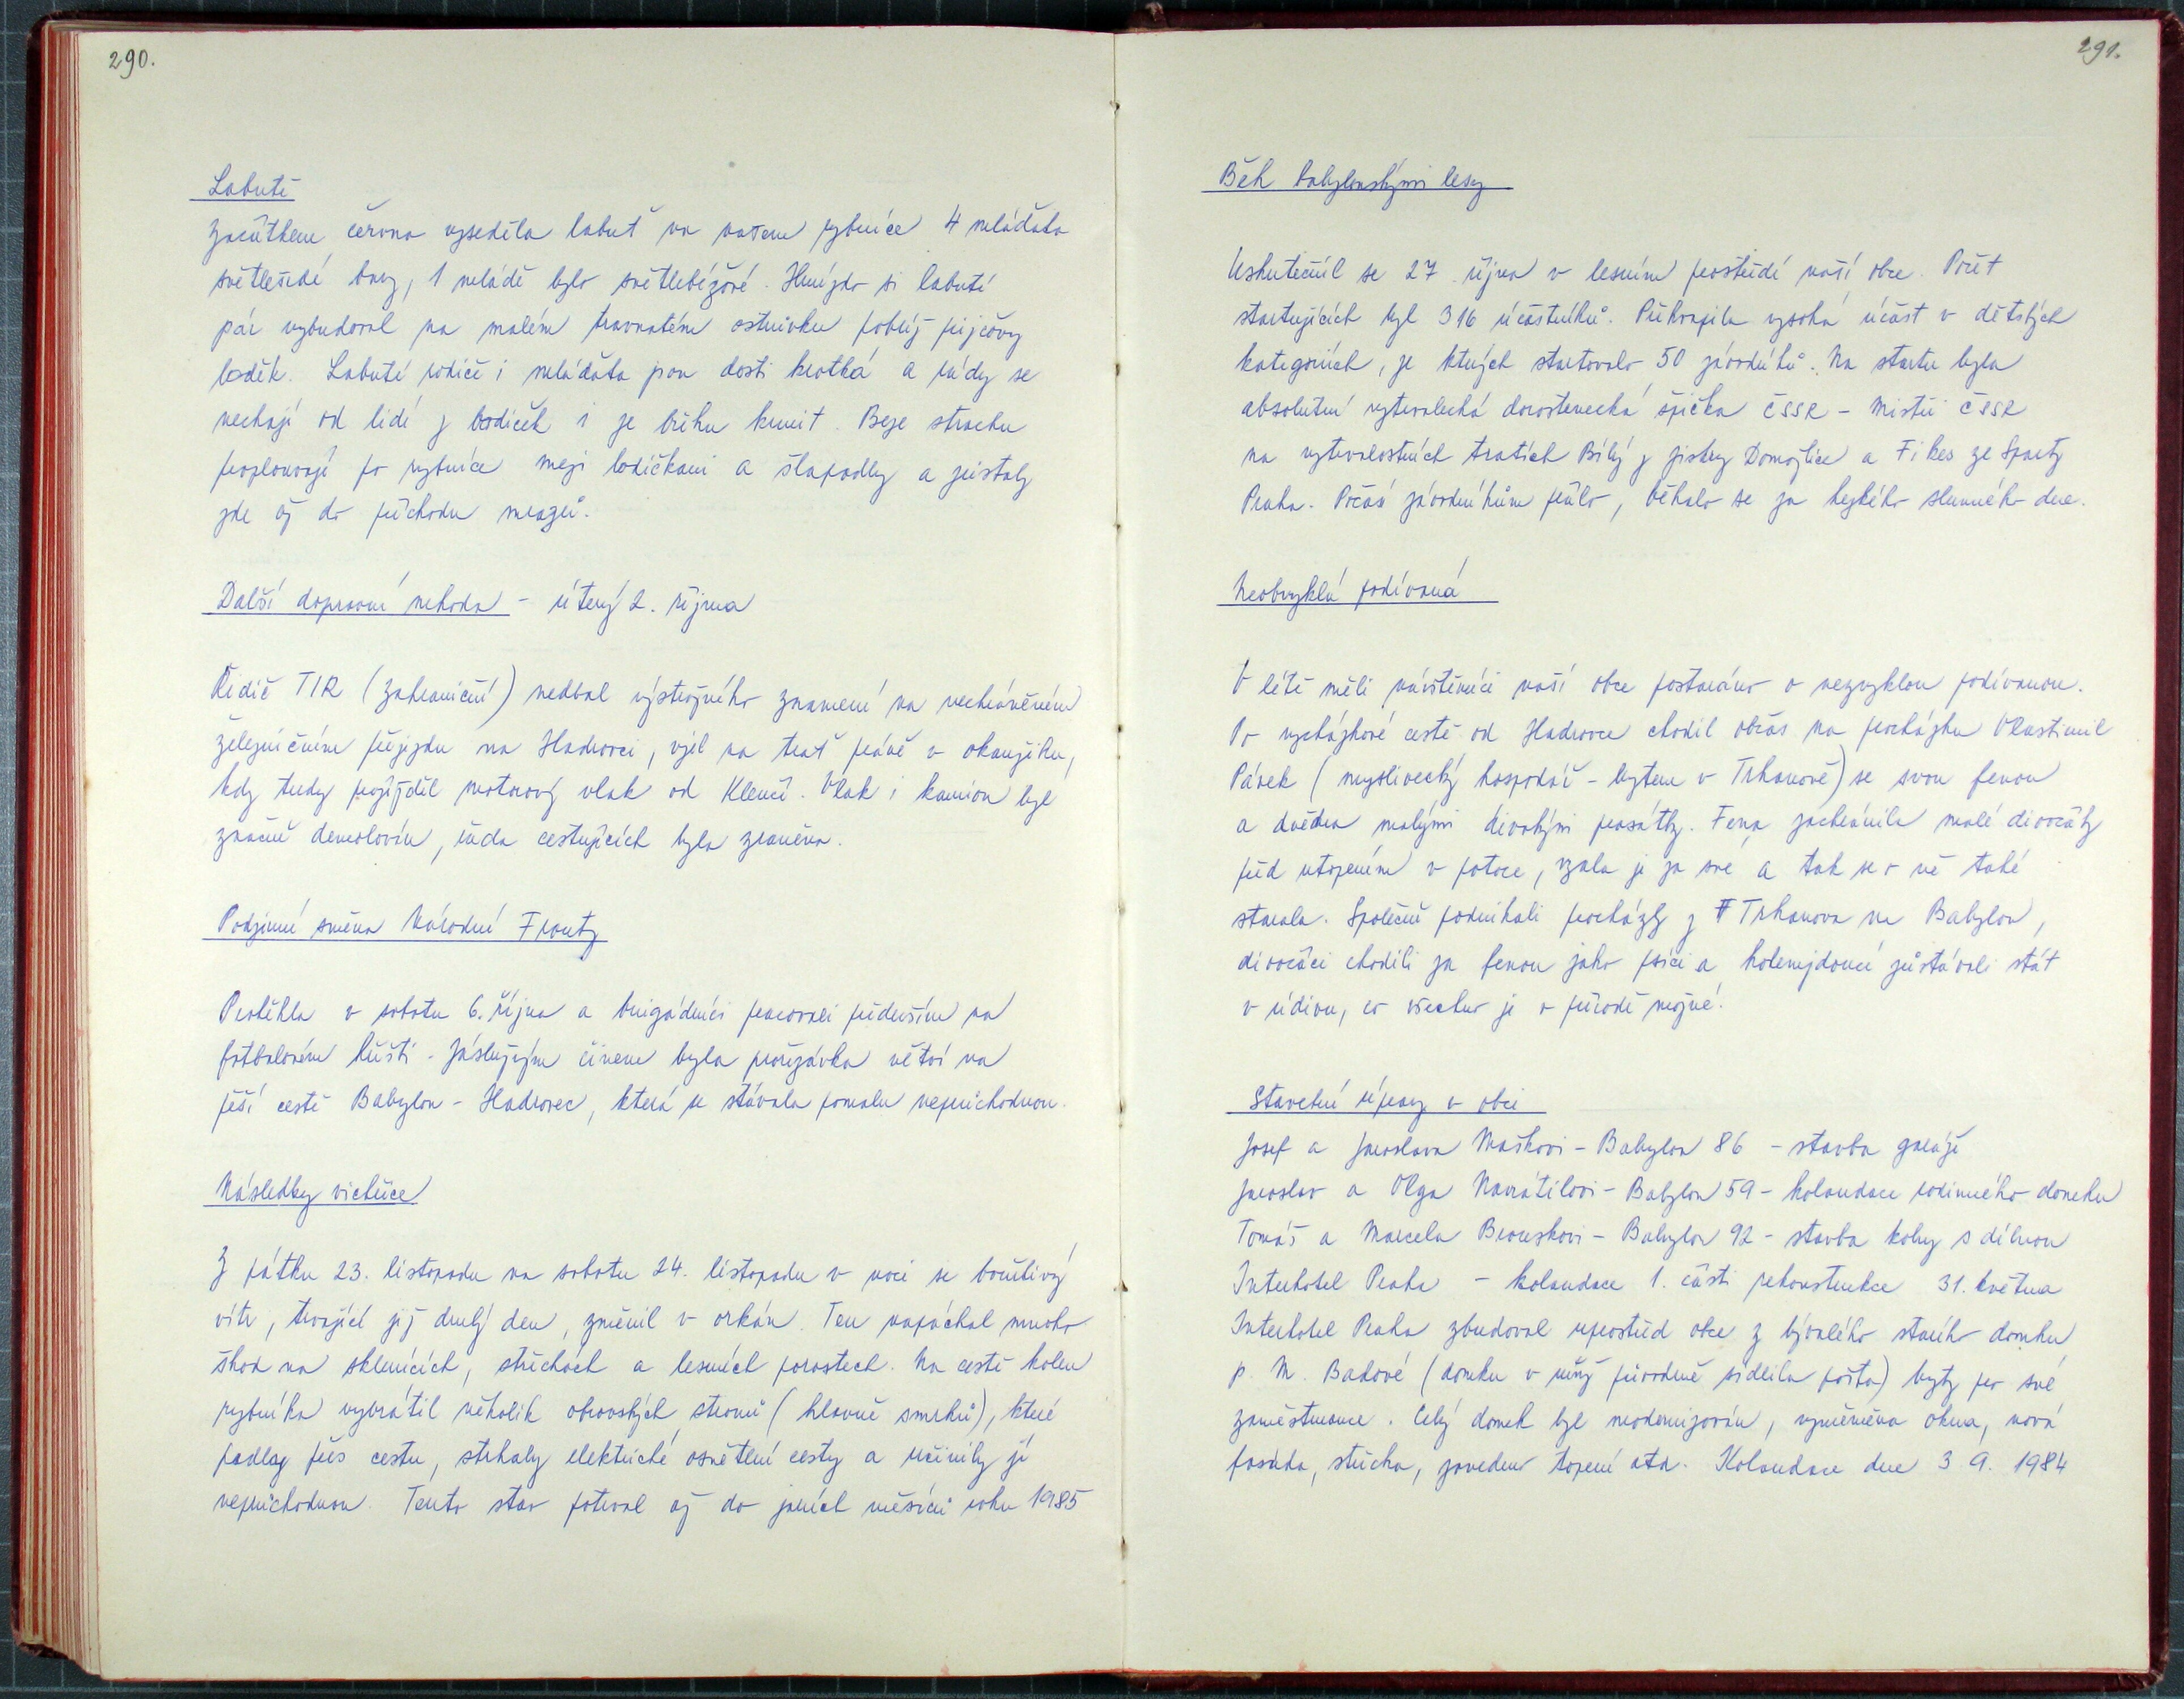 290.
Labutě
Začátkem června vyseděla labuť na našem rybníce 4 mláďata
světlešedé barvy, 1 mládě bylo světlebéžové. Hnízdo si labutí
pár vybudoval na malém travnatém ostrůvku poblíž půjčovny
loděk. Labutí rodiče i mláďata jsou dosti krotká a rády se
nechají od lidí z lodiček i ze břehu krmit. Beze strachu
proplouvají po rybníce mezi lodičkami a šlapadly a zůstaly
zde až do příchodu mrazů.
Další dopravní nehoda - úterý 2. října
Řidič TIR (zahraniční) nedbal výstražného znamení na nechráněném
železničním přejezdu na Hadrovci, vjel na trať právě v okamžiku,
kdy tudy projížděl motorový vlak od Klenčí. Vlak i kamion byl
značně demolován, řada cestujících byla zraněna.
Podzimní směna Národní Fronty
Proběhla v sobotu 6. října a brigádníci pracovali především na
fotbalovém hřišti. Záslužným činem byla prořezávka větví na
pěší cestě Babylon - Hadrovec, která se stávala pomalu neprůchodnou.
Následky vichřice
Z pátku 23. listopadu na sobotu 24. listopadu v noci se bouřlivý
vítr, trvající již druhý den, změnil v orkán. Ten napáchal mnoho
škod na sklenících, střechách a lesních porostech. Na cestě kolem
rybníka vyvrátil několik obrovských stromů (hlavně smrků), které
padly přes cestu, strhaly elektrické osvětlení cesty a učinily ji
neprůchodnou. Tento stav potrval až do jarních měsíců roku 1985
291.
Běh babylonskými lesy
Uskutečnil se 27. října v lesním prostředí naší obce. Počet
startujících byl 316 účastníků. Překvapila vysoká účast v dětských
kategoriích, ze kterých startovalo 50 závodníků. Na startu byla
absolutní vytrvalecká dorostenecká špička ČSSR - mistři ČSSR
na vytrvalostních tratích Bílý z Jiskry Domažlice a Fikes ze Sparty
Praha. Počasí závodníkům přálo, běhalo se za hezkého slunného dne.
Neobvyklá podívaná
V létě měli návštěvníci naší obce postaráno o nezvyklou podívanou.
Po vycházkové cestě od Hadrovce chodil občas na procházku Vlastimil
Pávek (myslivecký hospodář - bytem v Trhanově) se svou fenou
a dvěma malými divokými prasátky. Fena zachránila malé divočáky
před utopením v potoce, vzala je za své a tak se o ně také
starala. Společně podnikali procházky z Trhanova na Babylon,
divočáci chodili za fenou jako psíci a kolemjdoucí zůstávali stát
v údivu, co všechno je v přírodě možné!
Stavební úpravy v obci
Josef a Jaroslava Maškovi - Babylon 86 - stavba garáže
Jaroslav a Olga Navrátilovi - Babylon 59 - kolaudace rodinného domku
Tomáš a Marcela Brouskovi - Babylon 92 - stavba kolny s dílnou
Interhotel Praha - kolaudace 1. části rekonstrukce 31. května
Interhotel Praha zbudoval uprostřed obce z bývalého starého domku
p. M. Badové (domku v němž původně sídlila pošta) byty pro své
zaměstnance. Celý domek byl modernizován, vyměněna okna, nová
fasáda, střecha, zavedeno topení atd. Kolaudace dne 3. 9. 1984